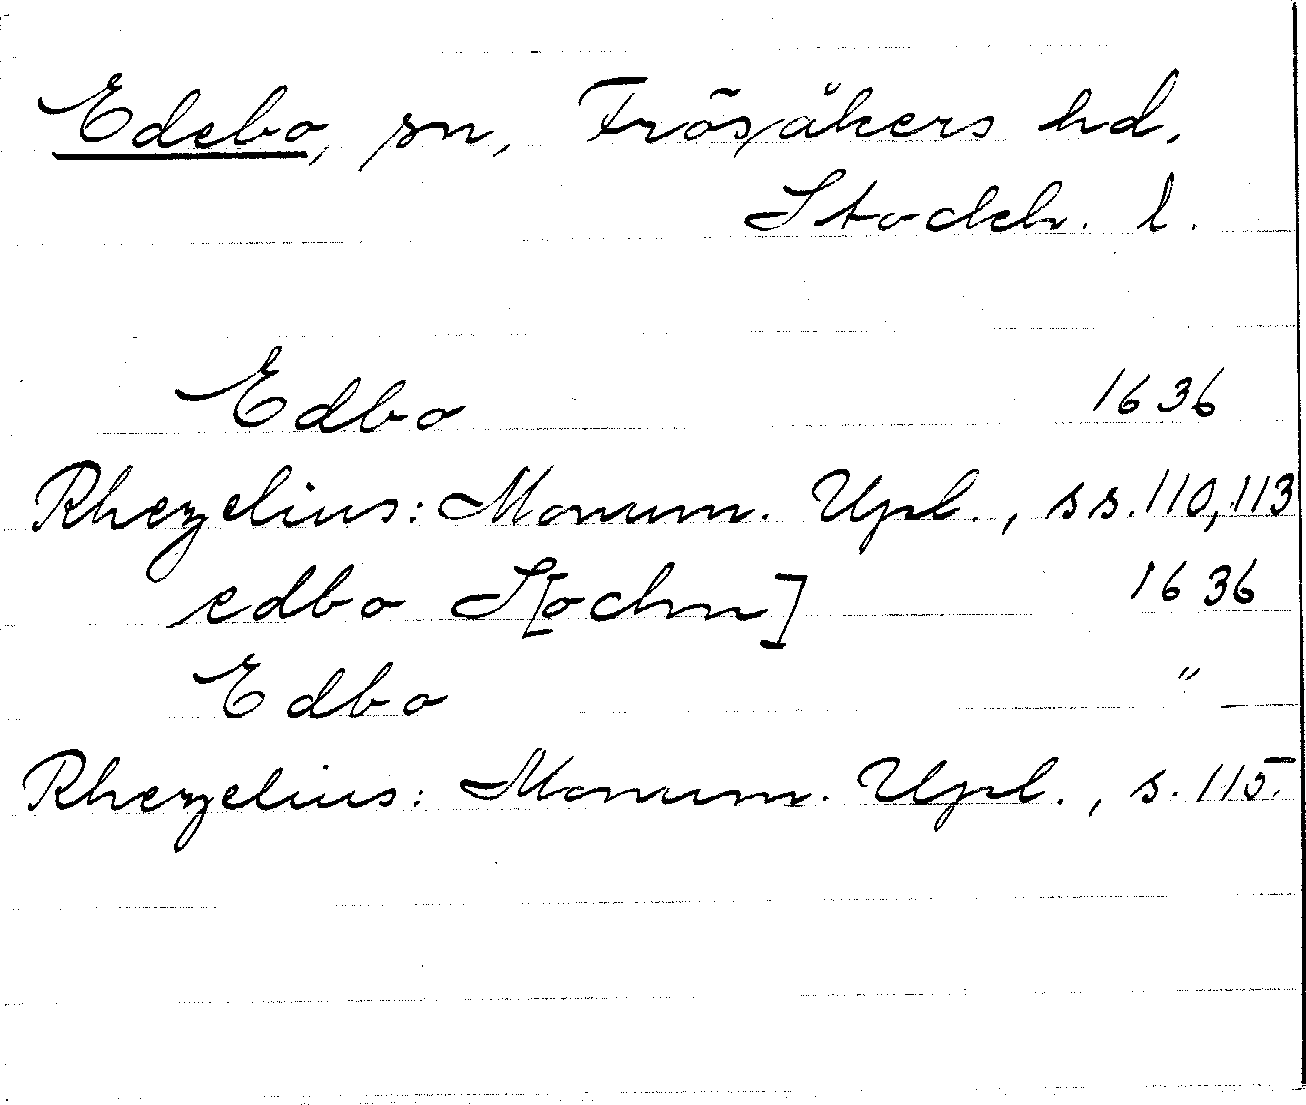 Edebo, sn, Frösåkers hd,
Stockh. l.
Edbo 1636
Rhezelius: Monum. Upl., ss. 110, 113
edbo S[ochn] 1636
Edbo "
Rhezelius: Monum. Upl., s. 115.